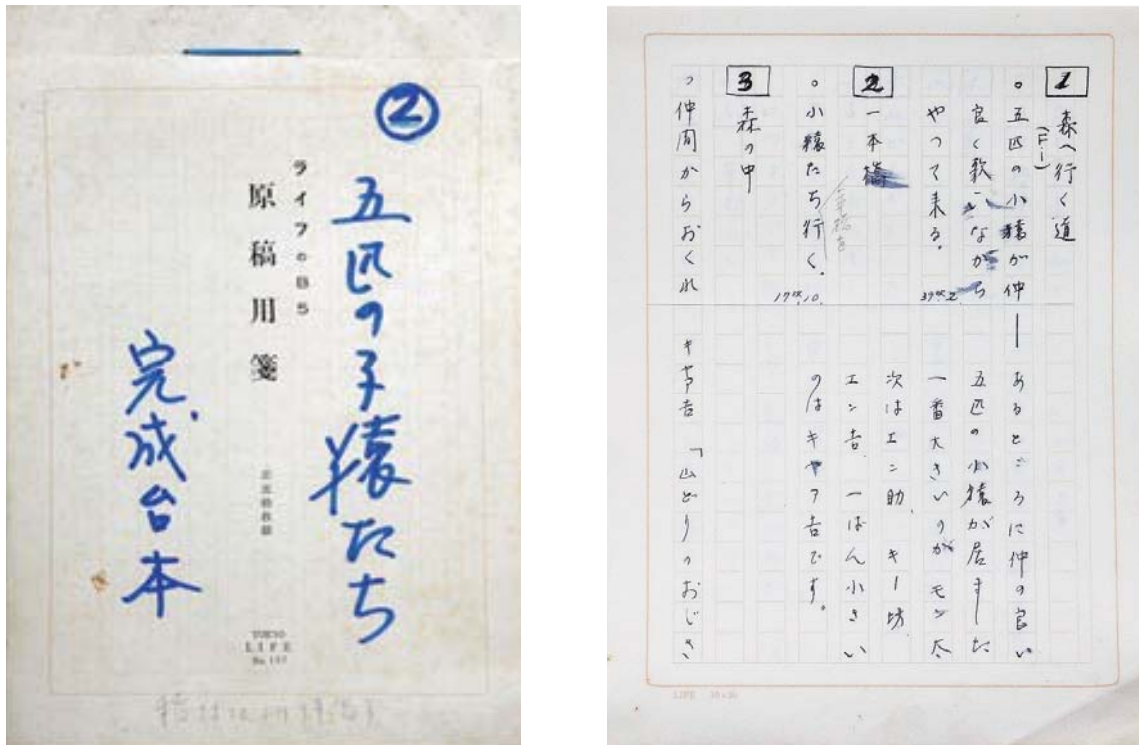 ②
五匹の子猿たち
ライフの印5
原稿用箋
完成台本
TOKYO
LIFE
No 157
1 森へ行く道
(F・I)
○ 五匹の小猿が仲
良く歌いながら
やって来る。
2 一本橋
○ 小猿たち行く。
3 森の中
仲間からおくれ
あるところに仲の良い
五匹の小猿が居ました
一番大きいのがモン太
次はエン助、キー坊、
エン吉、一ばん小さい
のはキャア吉です。
キャア吉「山どりのおじさ
LIFE 20×20